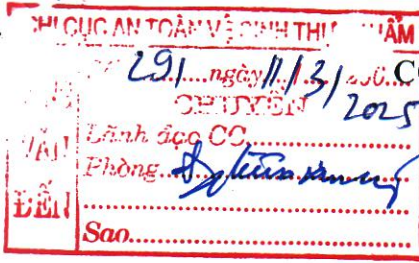 CHI CỤC AN TOÀN VỆ SINH THỰC PHẨM
VĂN
ĐẾN
Số 291 ngày 11/3/ 200... C
CHUYỂN 2025
Lãnh đạo CC
Phòng
Sao